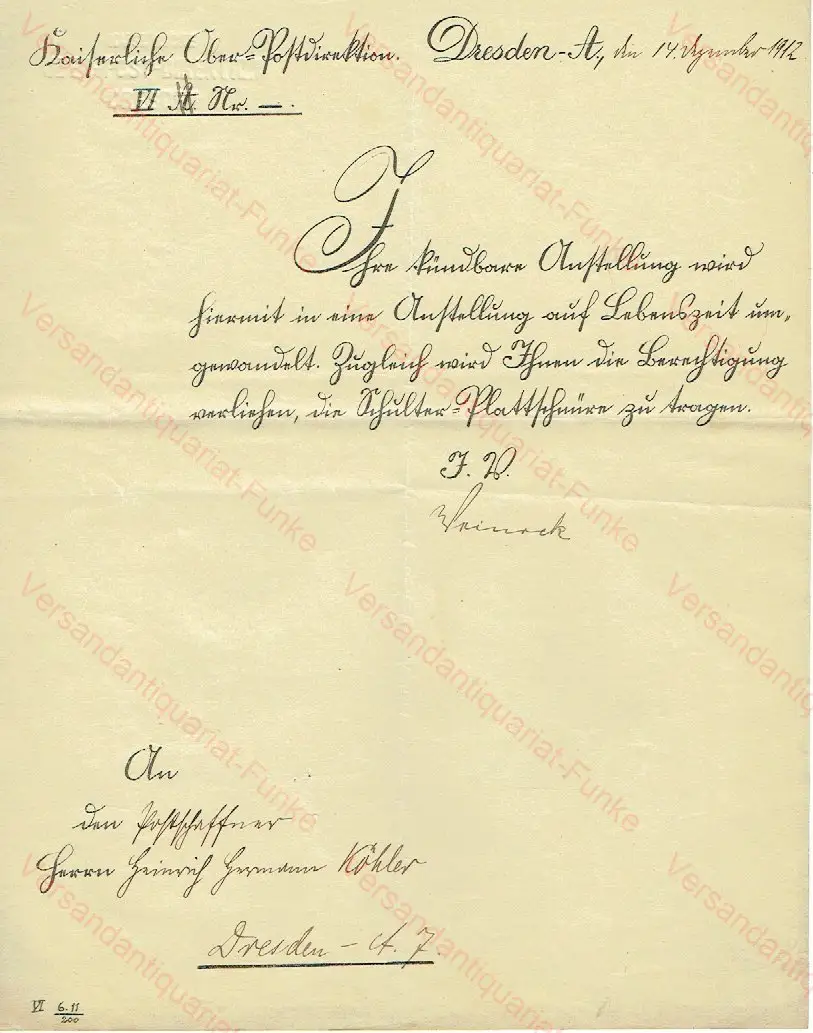 Kaiserliche Ober-Postdirektion. Dresden-A., den 14. Dezember 1912
VI Nr. —.
Ihre kündbare Anstellung wird
hiermit in eine Anstellung auf Lebenszeit um-
gewandelt. Zugleich wird Ihnen die Berechtigung
verliehen, die Schulter-Plattschnüre zu tragen.
I. V.
An
den Postschaffner
Herrn Heinrich Hermann Köhler
Dresden - A. 7.
VI 6.11
200
Versandantiquariat-Funke